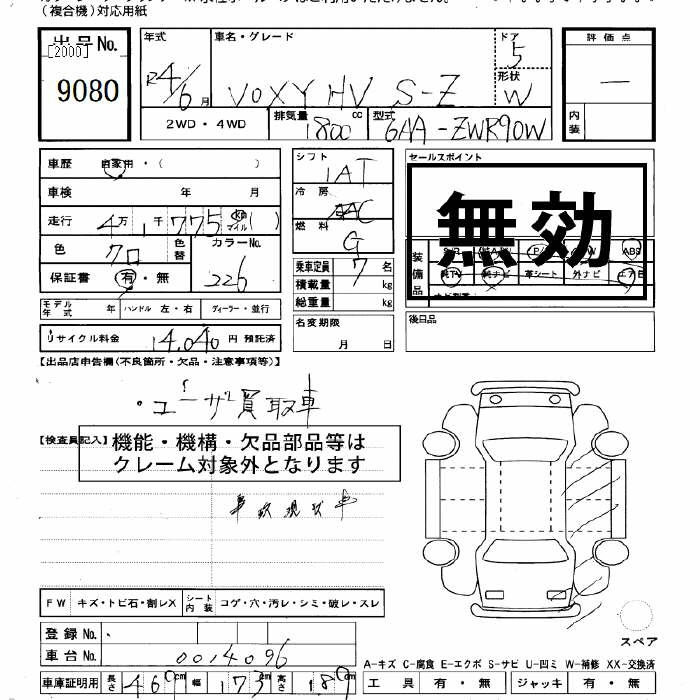 (複合機)対応用紙
出品No. [2000] 9080
年式 R4/6月
車名・グレード VOXY HV S-Z
ドア 5
形状 W
2WD・4WD
排気量 1800 cc
型式 6AA-ZWR90W
評価点 —
内装
車歴 自家用・( )
車検 年 月
走行 4万1千775 km マイル ( )
色 クロ 色替
カラーNo. 226
保証書 有・無
モデル年式 年 ハンドル 左・右 ディーラー・並行
リサイクル料金 14,040 円 預託済
シフト IAT
冷房 AAC
燃料 G
乗車定員 7 名
積載量 kg
総重量 kg
名変期限 月 日
セールスポイント
無効
装備品
ABS
革シート 外ナビ
後日品
【出品店申告欄(不良箇所・欠品・注意事項等)】
・ユーザ買取車
【検査員記入】
機能・機構・欠品部品等は
クレーム対象外となります
事故現状車
FW キズ・トビ石・割レX
シート内装 コゲ・穴・汚レ・シミ・破レ・スレ
登録No.
車台No. 0014096
車庫証明用 長さ 469cm 幅 173cm 高さ 189cm
スペア
A-キズ C-腐食 E-エクボ S-サビ U-凹ミ W-補修 XX-交換済
工具 有・無 ジャッキ 有・無